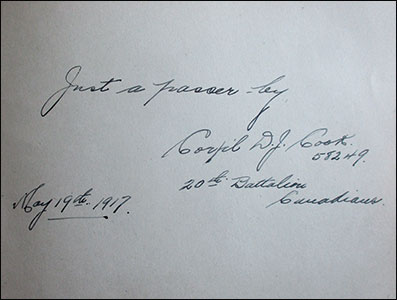 Just a passer-by
Corp'l D.J. Cook.
58249.
20th Battalion
Canadians.
May 19th 1917.